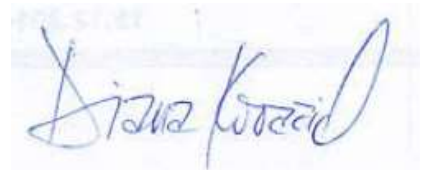 Diana Kovačić